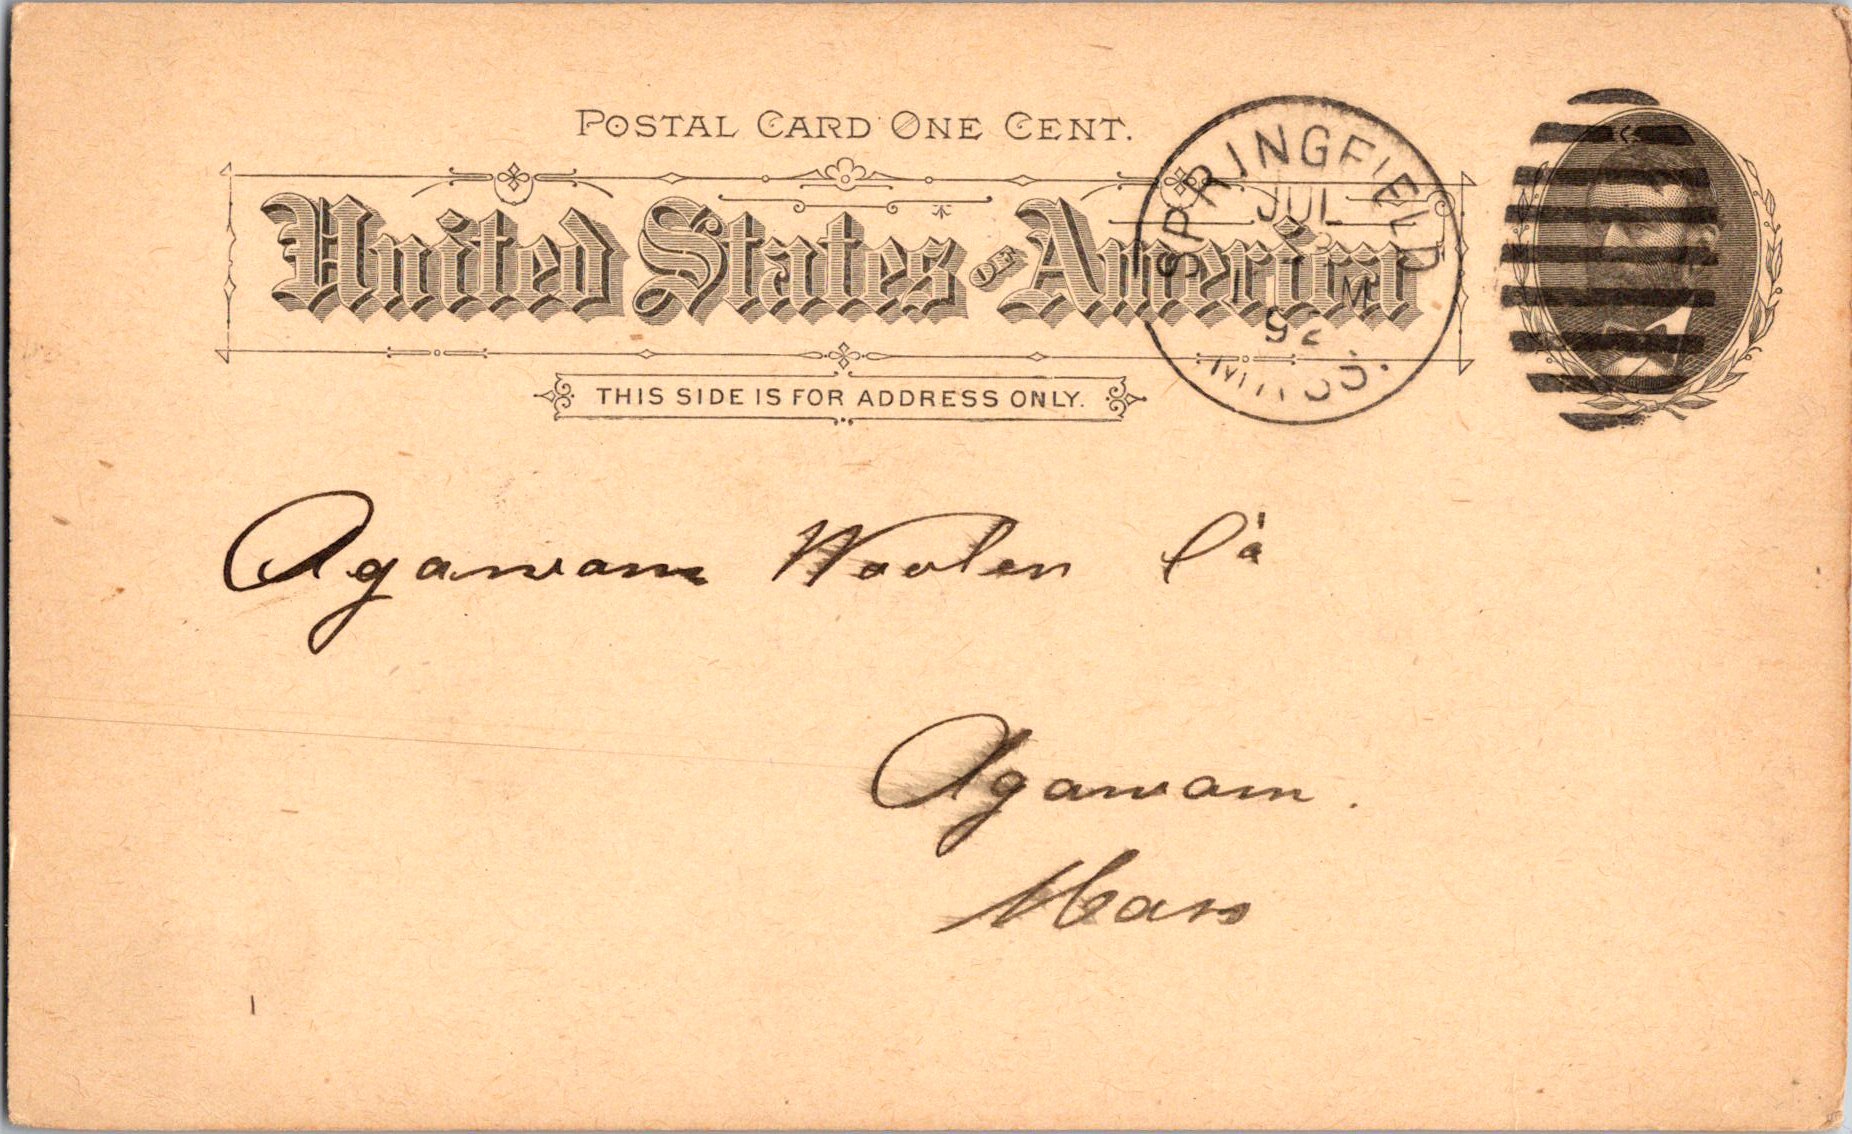 POSTAL CARD ONE CENT.
United States OF America
THIS SIDE IS FOR ADDRESS ONLY.
SPRINGFIELD
JUL
M
92
MASS.
Agawam Woolen Co
Agawam.
Mass